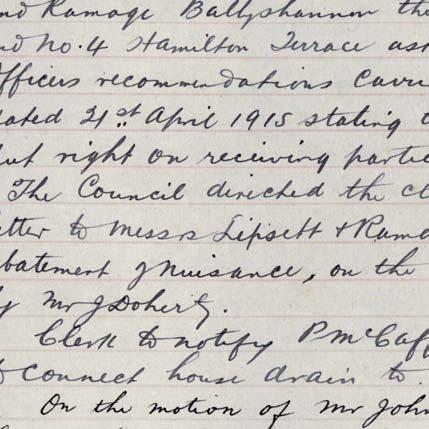 nd Ramage Ballyshannon the
nd No. 4 Hamilton Terrace ass
fficers recommendations carri
ated 21st April 1915 stating
ut right on receiving partic
The Council directed the cl
etter to Messrs Lipsett & Rama
batement of Nuisance, on the
y Mr J Doherty.
Clerk to notify P McCaff
o connect house drain to
On the motion of Mr John